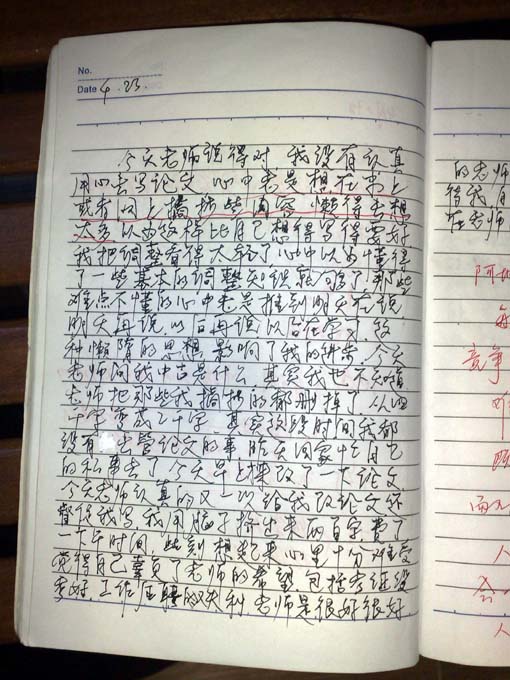 No.
Date 4.23.
今天老师说得对 我没有认真
用心去写论文 心中老是想在书上
或者网上摘抄些内容 懒得去想
太多 以为这样比自己想得写得要好
我把调整看得太轻了 心中以为懂得
了一些基本的调整知识就够了 那些
难点不懂的心中老是推到明天在说
明天再说 以后再说 以后在学习 这
种懒惰的思想影响了我的进步 今天
老师问我中古是什么 其实我也不知道
老师把那些我摘抄的都删掉了 从四
千字变成二千字 其实这段时间我都
没有 去管论文的事 昨天回家 自己
的私事去了 今天早上操改了一下论文
今天老师认真的又一次给我改论文 还
督促我写 我用脑子 出来两百字 费了
一下午时间 此刻想起来 心里十分难受
觉得自己辜负了老师的希望 包括考证没
考好 工作 的失利 老师是很好很好
的老师
给我
在老师
竞争
人
会
人